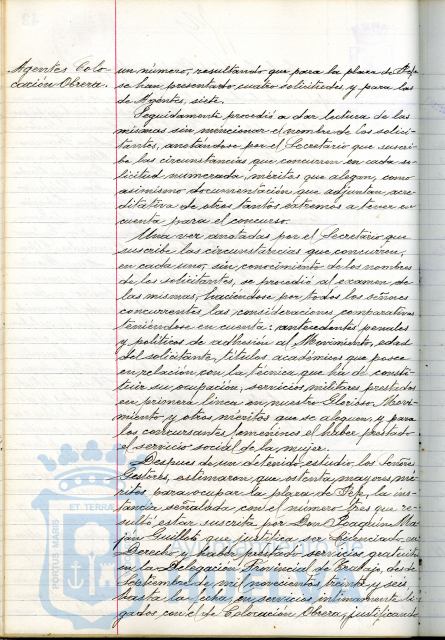 Agentes Colo-
cación Obrera.
un número, resultando que para la plaza de Jefe
se han presentado cuatro solicitudes y para las
de Agentes, siete.
Seguidamente procedió a dar lectura de las
mismas sin mencionar el nombre de los solici-
tantes, anotándose por el Secretario que suscri-
be las circunstancias que concurren en cada so-
licitud numerada, méritos que alegan, como
asimismo documentación que adjuntan, acre-
ditativa de otros tantos extremos a tener en
cuenta para el concurso.
Una vez anotadas por el Secretario que
suscribe las circunstancias que concurren,
en cada uno, sin conocimiento de los nombres
de los solicitantes, se procedió al examen de
las mismas, haciéndose por todos los señores
concurrentes las consideraciones comparativas
teniéndose en cuenta: antecedentes penales
y políticos de adhesión al Movimiento, edad
del solicitante, títulos académicos que posee
en relación con la técnica que ha de consti-
tuir su ocupación, servicios militares prestados
en primera línea en nuestro Glorioso Movi-
miento, y otros méritos que se aleguen, y para
los concursantes femeninos el haber prestado
el servicio social de la mujer.
Despues de un detenido estudio los Señores
Gestores, estimaron que ostenta mayores mé-
ritos para ocupar la plaza de Jefe, la ins-
tancia señalada con el número tres que re-
sultó estar suscrita por Don Joaquín Ma-
Guillot que justifica ser Licenciado en
Derecho y haber prestado servicios gratuitos
en la Delegación Provincial de Trabajo, desde
Septiembre de mil novecientos treinta y seis
hasta la fecha, en servicios intimamente li-
gados con el de Colocación Obrera, justificando
PORTUS MAGIS
ET TERRA